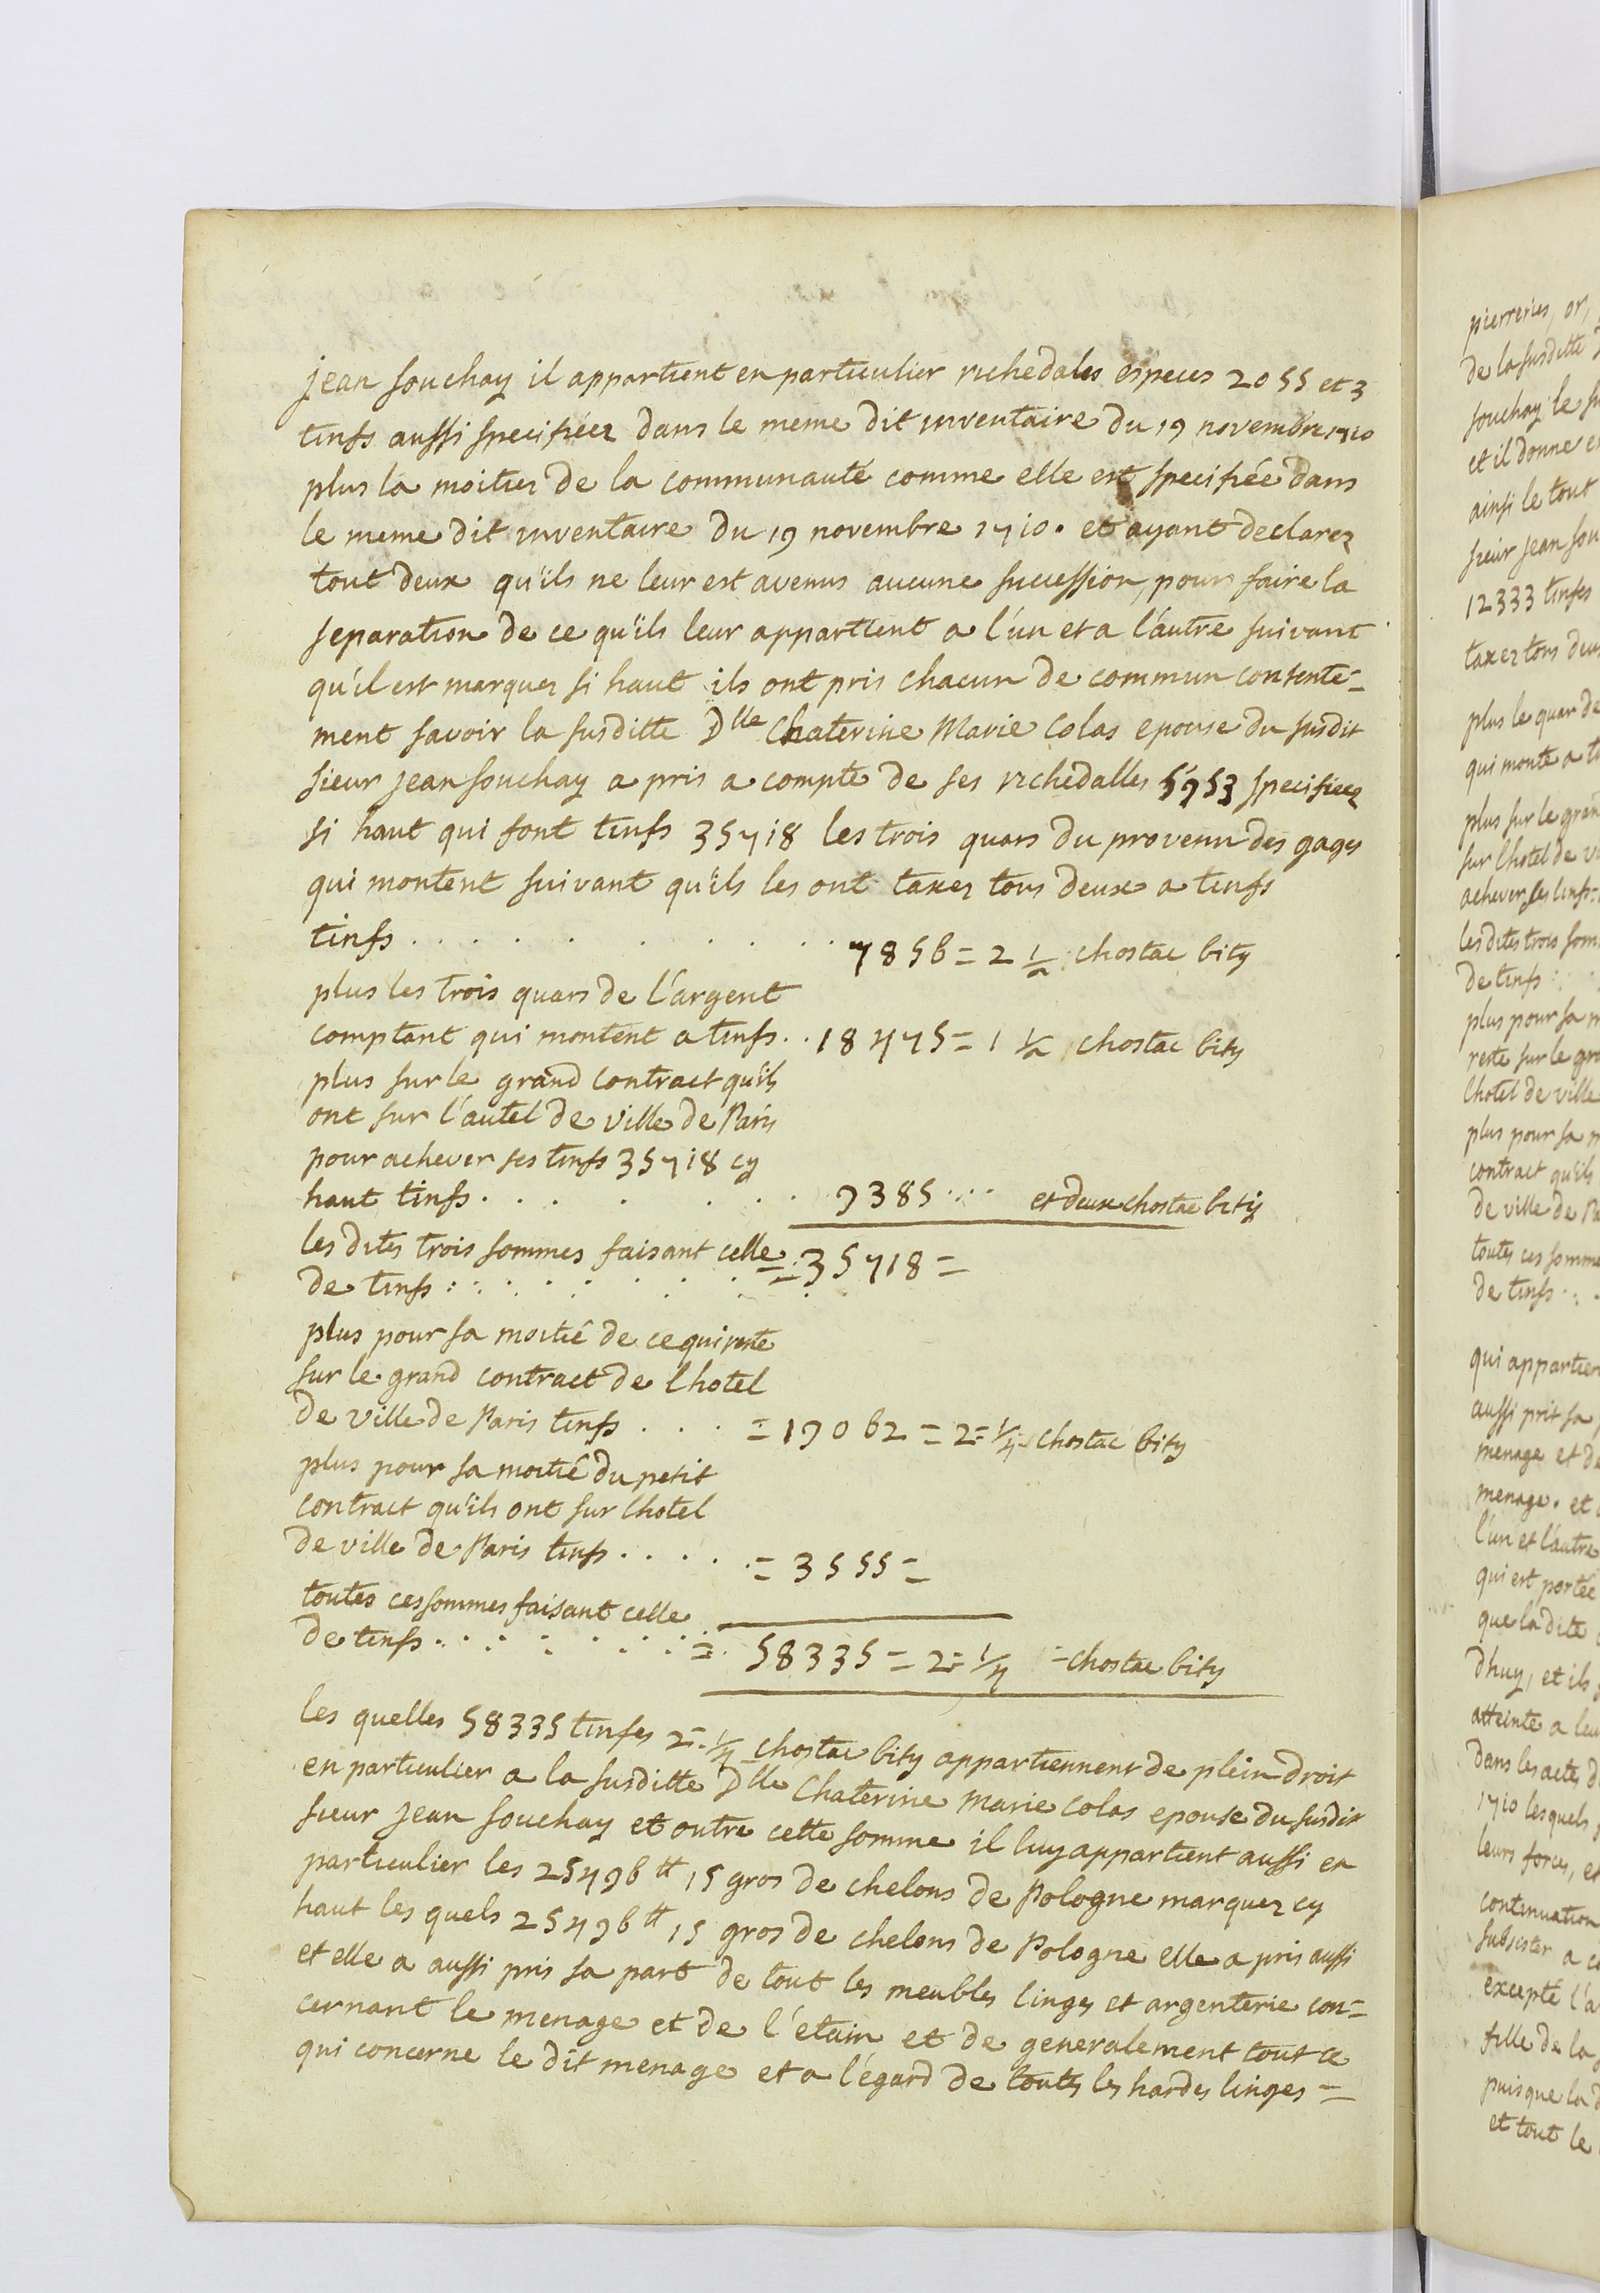 jean souchay il appartient en particulier richedales especes 2055 et 3
tinfs aussi specifiéez dans le meme dit inventaire du 19 novembre 1710
plus la moitiez de la communauté comme elle est specifiée dans
le meme dit inventaire du 19 novembre 1710. et ayant declarez
tout deux qu'ils ne leur est avenus aucune succession, pour faire la
separation de ce qu'ils leur appartient a l'un et a l'autre suivant
qu'il est marquez si haut ils ont pris chacun de commun contente=
ment savoir la susditte Dlle Chaterine Marie Colas epouse du susdit
sieur jean souchay a pris a compte de ses richedalles 5953 specifieez
si haut qui font tinfs 35718 les trois quars du provenu des gages
qui montent suivant qu'ils les ont taxez tous deux a tinfs
tinfs . . . . . . . . . . 7856 = 2 1/2 chostac bity
plus les trois quars de l'argent
comptant qui montent a tinfs . . 18475 = 1 1/2 chostac bity
plus sur le grand contract qu'ils
ont sur l'autel de ville de Paris
pour achever ses tinfs 35718 cy
haut tinfs . . . . . . . 9385 . . . et deux chostac bity
les dites trois sommes faisant celle
de tinfs : : . : : . . . = 35718 =
plus pour sa moitié de ce qui reste
sur le grand contract de lhotel
de ville de Paris tinfs . . . . = 19062 = 2 = 1/4 chostac bity
plus pour sa moitié du petit
contract qu'ils ont sur lhotel
de ville de Paris tinfs . . . . . = 3555 =
toutes ces sommes faisant celle
de tinfs . . . : . . . = 58335 = 2 = 1/4 = chostac bity
les quelles 58335 tinfes 2 = 1/4 chostac bity appartiennent de plein droit
en particulier a la susditte Dlle Chaterine Marie Colas epouse du susdit
sieur jean souchay et outre cette somme il luy appartient aussi en
particulier les 25496 tt 15 gros de chelons de Pologne marquez cy
haut les quels 25496 tt 15 gros de chelons de Pologne elle a pris aussi
et elle a aussi pris sa part de tout les meubles linges et argenterie con=
cernant le menage et de l'etain et de generalement tout ce
qui concerne le dit menage et a l'égard de toutes les hardes linges =
pierreries, or,
de la susditte
souchay le
et il donne
ainsi le tout
sieur jean
12333 tinfes
taxez tous
plus le quar de
qui monte a
plus sur le
sur lhotel de
achever ses tinfs
les dites trois
de tinfs :
plus pour sa
reste sur le
lhotel de ville
plus pour sa
contract qu'ils
de ville de
toutes ces
de tinfs . :
qui
aussi prit sa
menage et
menage . et
l'un et l'autre
qui est portée
que la dite
Dhuy, et ils
atteinte a
dans les actes
1710 lesquels
leurs forces, et
continuation
subsister a
excepté
fille de la
puisque la
et tout le